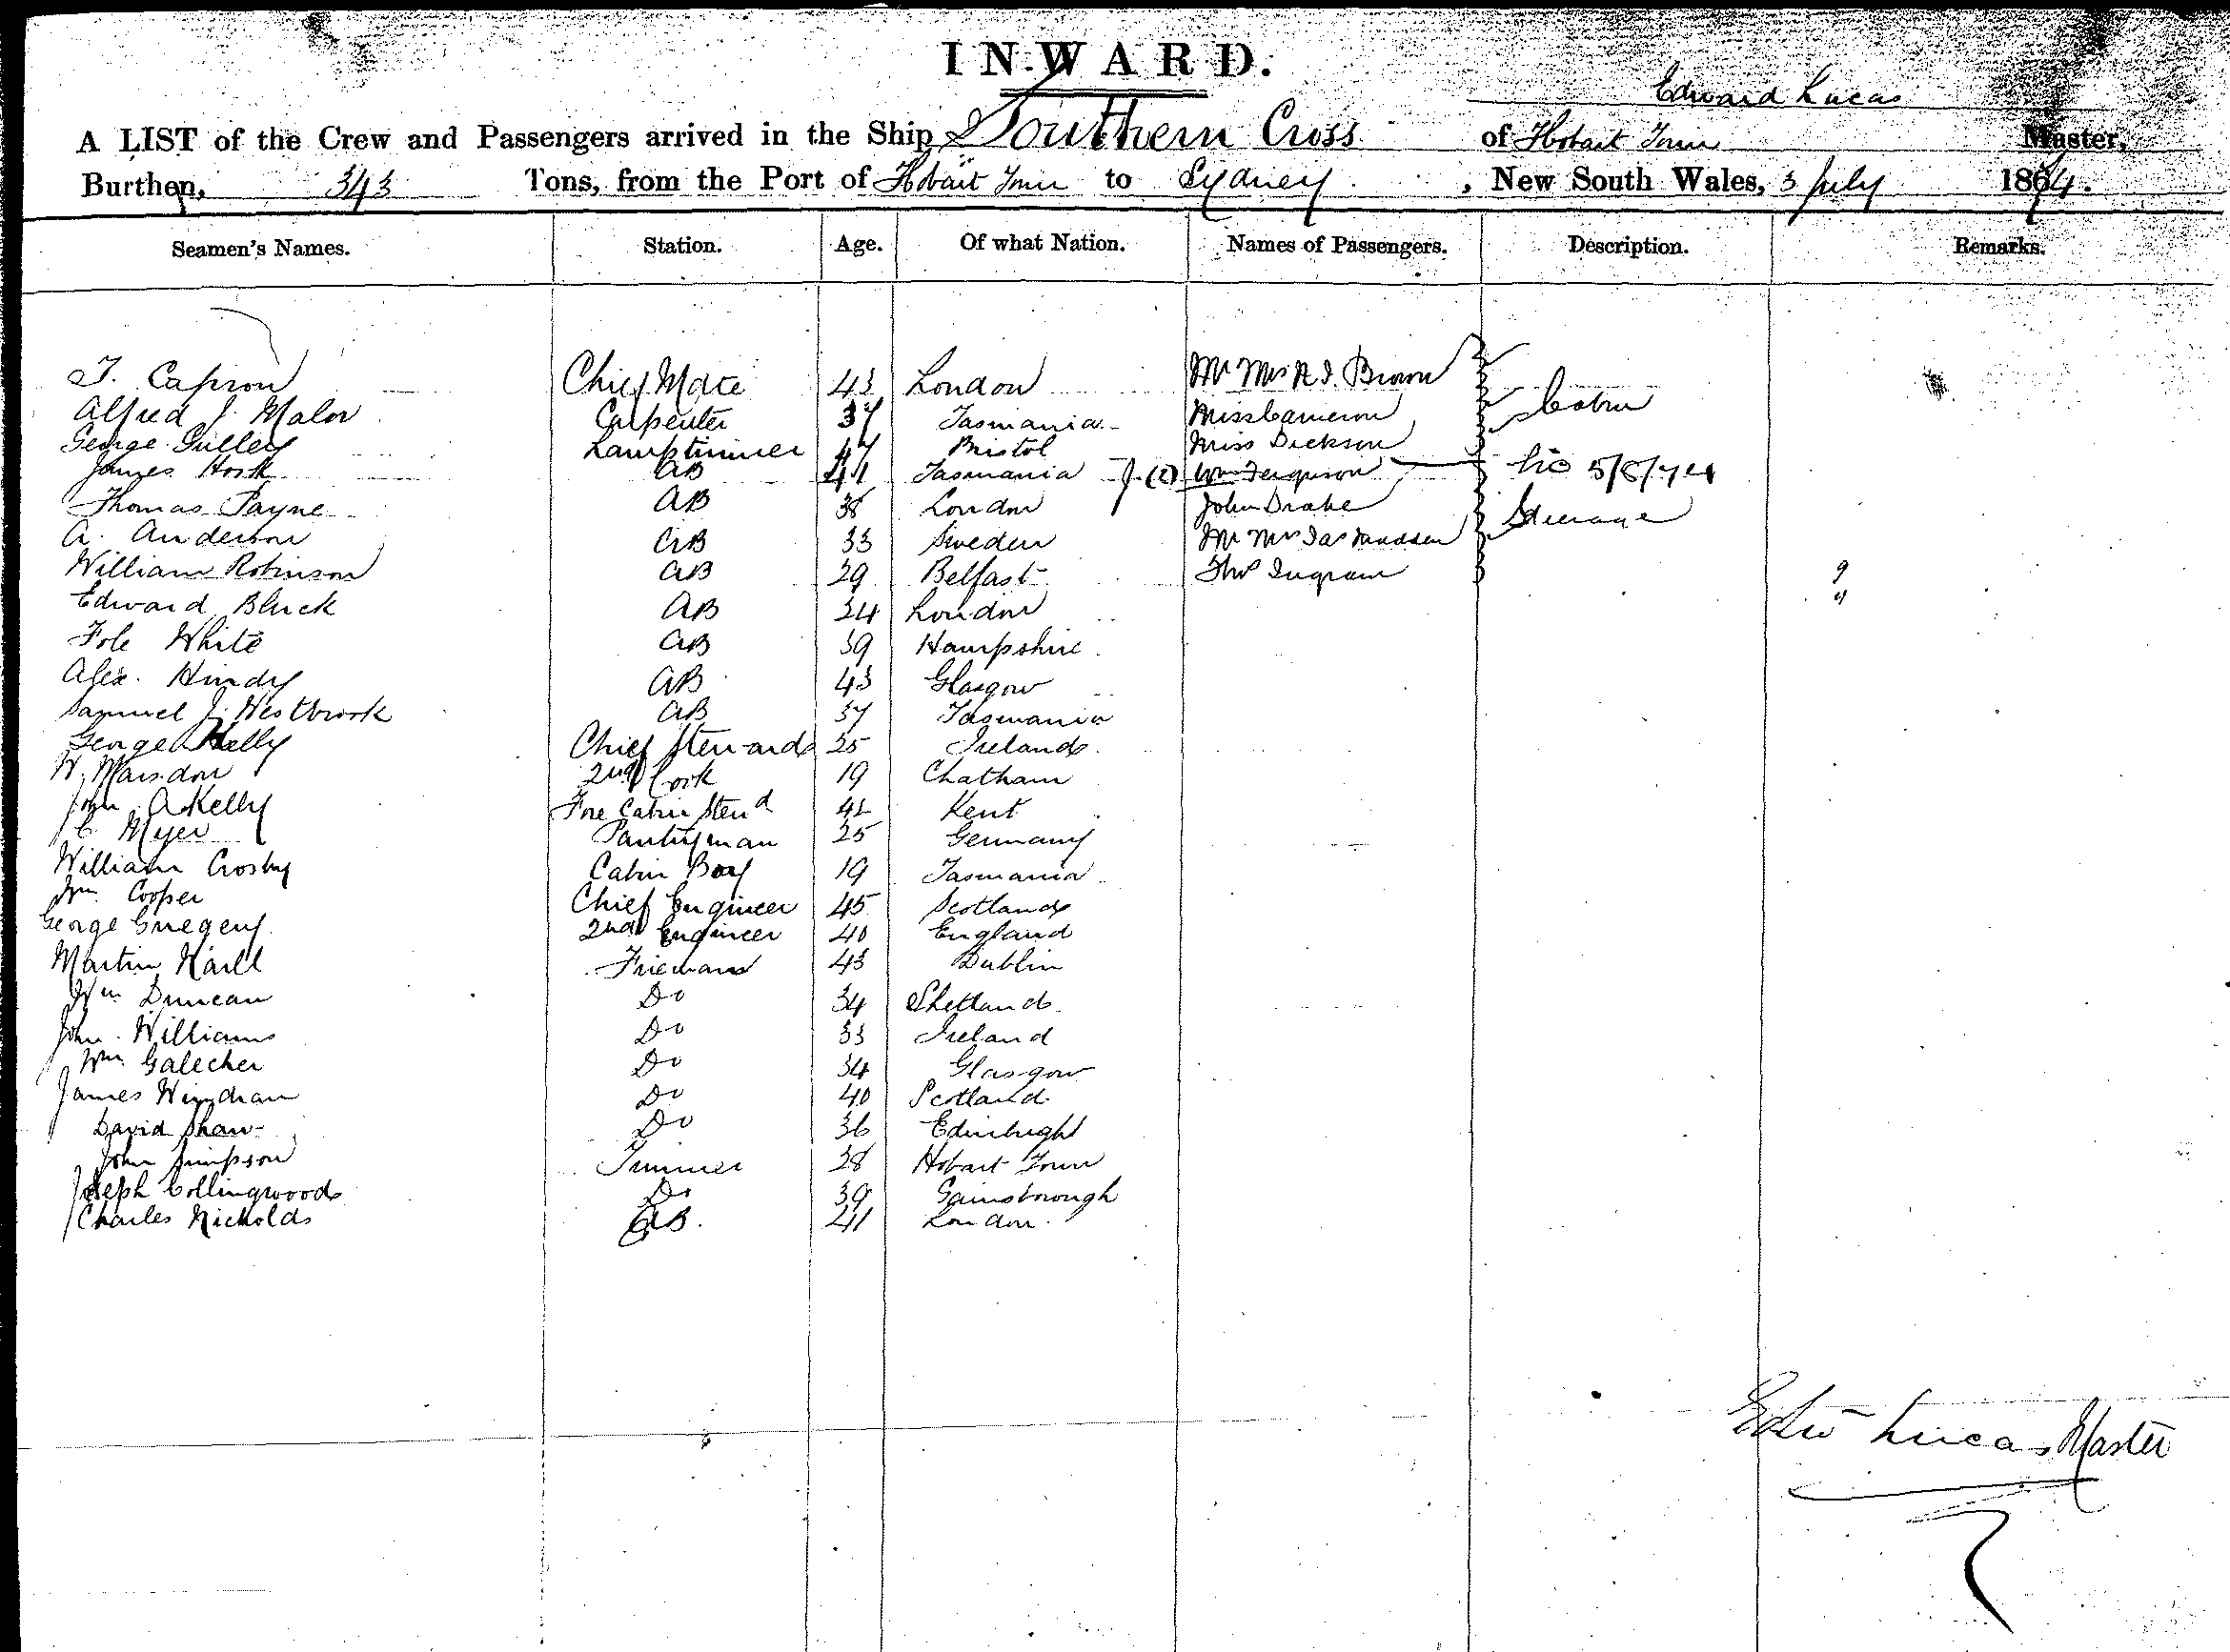 INWARD.
Edward Lucas
A LIST of the Crew and Passengers arrived in the Ship Southern Cross of Hobart Town Master,
Burthen, 343 Tons, from the Port of Hobart Town to Sydney, New South Wales, 3 July 1874.
Seamen's Names. Station. Age. Of what Nation. Names of Passengers. Description. Remarks.
T. Capron Chief Mate 43 London Mr Mrs A I. Brown
Alfred J. Malor Carpenter 37 Tasmania Miss Cameron Cabin
George Gulley Lamptrimmer 47 Bristol Miss Dickson
James Hook AB 41 Tasmania Wm Ferguson 5/8/74
Thomas Payne AB 38 London John Drake Steerage
A. Anderson AB 33 Sweden Mr Mrs Jas
William Robinson AB 29 Belfast Thos Ingram
Edward Bluck AB 34 London
White AB 39 Hampshire
Alex. Hindy AB 43 Glasgow
Samuel J. Westbrook AB 37 Tasmania
George Kelly Chief Steward 25 Ireland
W. Marsdon 2nd Cook 19 Chatham
John A Kelly Fore Cabin Stewd 42 Kent
C. Myer Pantryman 25 Germany
William Crosby Cabin Boy 19 Tasmania
Wm. Cooper Chief Engineer 45 Scotland
George Gregery 2nd Engineer 40 England
Martin Fireman 43 Dublin
Wm Duncan Do 34 Shetland
John Williams Do 33 Ireland
Wm. Galecher Do 34 Glasgow
James Windram Do 40 Scotland
David Shaw Do 36 Edinburgh
John Simpson Trimmer 28 Hobart Town
Joseph Collingwood Do 39 Gainsborough
Charles Nicholds AB. 41 London
Edw Lucas Master